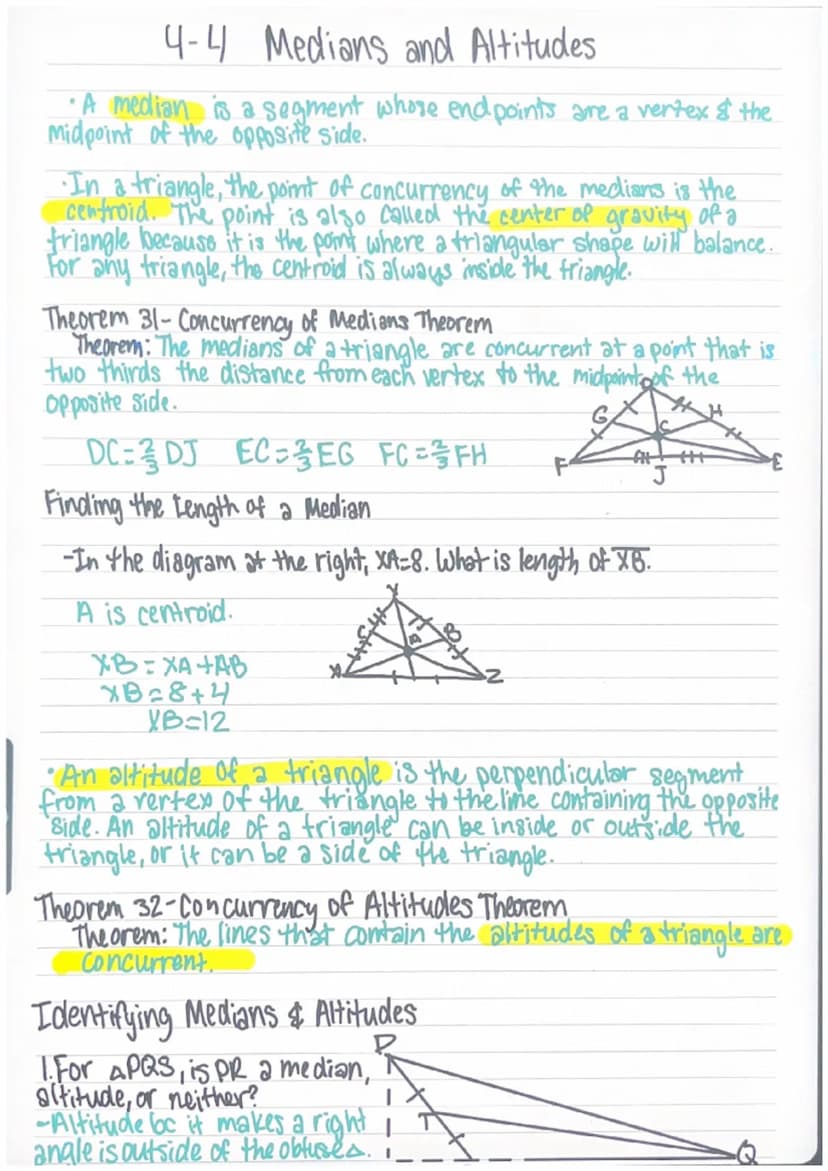 4-4 Medians and Altitudes
• A median is a segment whose endpoints are a vertex & the
midpoint of the opposite side.
• In a triangle, the point of concurrency of the medians is the
centroid. The point is also called the center of gravity of a
triangle because it is the point where a triangular shape will balance.
For any triangle, the centroid is always inside the triangle.
Theorem 31- Concurrency of Medians Theorem
Theorem: The medians of a triangle are concurrent at a point that is
two thirds the distance from each vertex to the midpoint of the
opposite side.
D
G
H
C
F
J
E
DC=2/3 DJ EC=2/3 EG FC=2/3 FH
Finding the Length of a Median
-In the diagram at the right, XA=8. What is length of XB.
A is centroid.
Y
C
A
B
X
Z
XB = XA + AB
XB = 8 + 4
XB = 12
• An altitude of a triangle is the perpendicular segment
from a vertex of the triangle to the line containing the opposite
side. An altitude of a triangle can be inside or outside the
triangle, or it can be a side of the triangle.
Theorem 32-Concurrency of Altitudes Theorem
Theorem: The lines that contain the altitudes of a triangle are
concurrent.
Identifying Medians & Altitudes
1. For △PQS, is PR a median,
altitude, or neither?
-Altitude bc it makes a right
angle is outside of the obtuse △.
P
T
Q